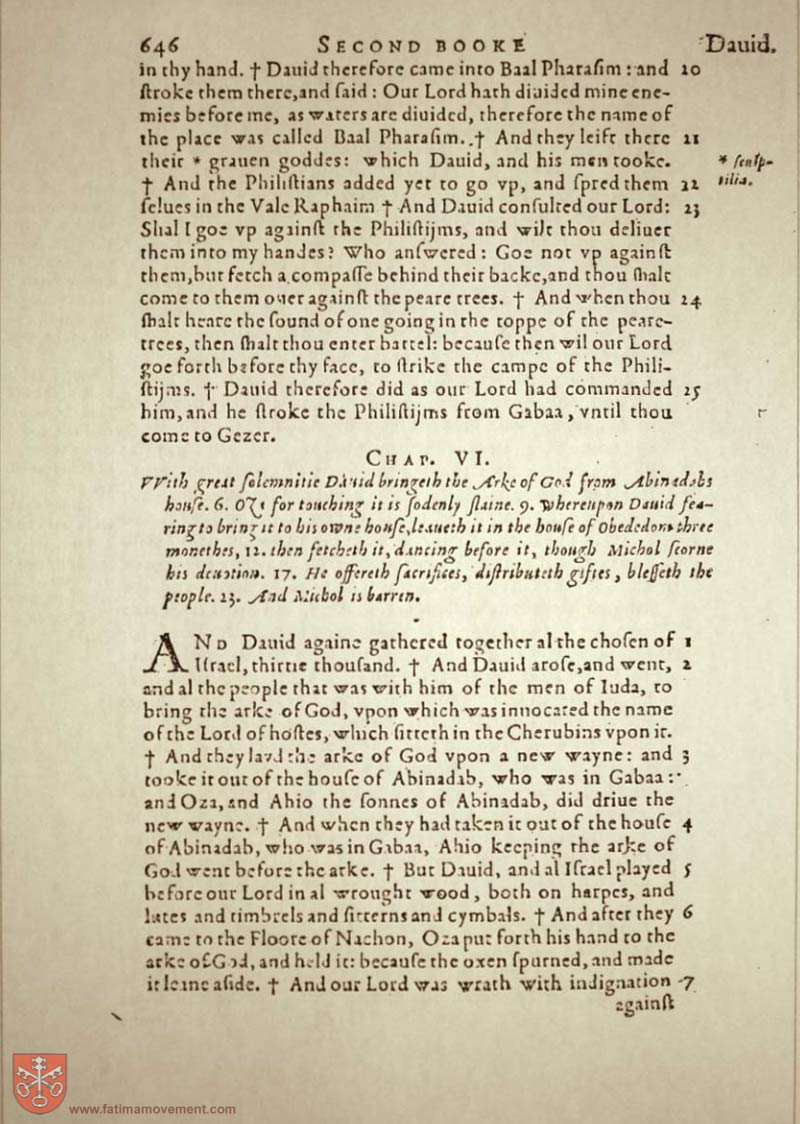 646 SECOND BOOKE Dauid.
in thy hand. † Dauid therefore came into Baal Pharaſim : and 20
ſtroke them there, and ſaid : Our Lord hath diuided mine ene-
mies before me, as waters are diuided, therefore the name of
the place was called Baal Pharaſim. † And they leift there 21
their * grauen goddes: which Dauid, and his men tooke. * ſculp-
† And the Philiſtians added yet to go vp, and ſpred them 22 tilia.
ſelues in the Vale Raphaim † And Dauid conſulted our Lord: 23
Shal I goe vp againſt the Philiſtijms, and wilt thou deliuer
them into my handes? Who anſwered: Goe not vp againſt
them, but fetch a compaſſe behind their backe, and thou ſhalt
come to them ouer againſt the peare trees. † And when thou 24
ſhalt heare the ſound of one going in the toppe of the peare-
trees, then ſhalt thou enter battel: becauſe then wil our Lord
goe forth before thy face, to ſtrike the campe of the Phili-
ſtijms. † Dauid therefore did as our Lord had commanded 25
him, and he ſtroke the Philiſtijms from Gabaa, vntil thou
come to Gezer.
CHAP. VI.
VVith great ſolemnitie Dauid bringeth the Arke of God from Abinadabs
houſe. 6. Oza for touching it is ſodenly ſlaine. 9. whereupon Dauid fea-
ring to bring it to his owne houſe, leaueth it in the houſe of Obededom three
monethes, 12. then fetcheth it, dancing before it, though Michol ſcorne
his deuotion. 17. He offereth ſacrifices, diſtributeth giftes, bleſſeth the
people. 23. And Michol is barren.
AND Dauid againe gathered together al the choſen of 1
Iſrael, thirtie thouſand. † And Dauid aroſe, and went, 2
and al the people that was with him of the men of Iuda, to
bring the arke of God, vpon which was inuocated the name
of the Lord of hoſtes, which ſitteth in the Cherubins vpon it.
† And they layd the arke of God vpon a new wayne: and 3
tooke it out of the houſe of Abinadab, who was in Gabaa:
and Oza, and Ahio the ſonnes of Abinadab, did driue the
new wayne. † And when they had taken it out of the houſe 4
of Abinadab, who was in Gabaa, Ahio keeping the arke of
God went before the arke. † But Dauid, and al Iſrael played 5
before our Lord in al wrought wood, both on harpes, and
lutes and timbrels and ſitterns and cymbals. † And after they 6
came to the Floore of Nachon, Oza put forth his hand to the
arke of God, and held it: becauſe the oxen ſpurned, and made
it leane aſide. † And our Lord was wrath with indignation 7
againſt
www.fatimamovement.com